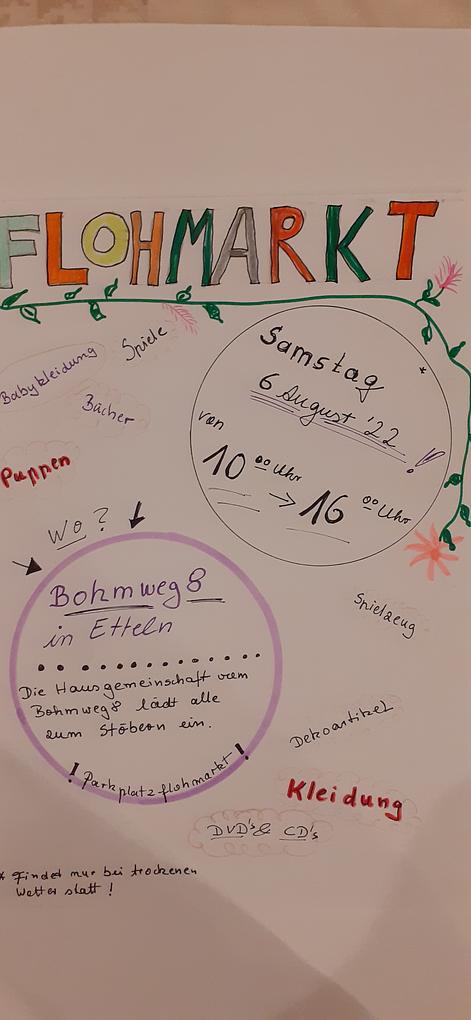 FLOHMARKT
Spiele
Babykleidung
Bücher
Puppen
Samstag *
6 August '22 !
von
10 ⁰⁰ Uhr
→ 16 ⁰⁰ Uhr
Wo?
Bohmweg 8
in Etteln
Die Hausgemeinschaft vom
Bohmweg 8 lädt alle
zum Stöbern ein.
! Parkplatzflohmarkt !
Spielzeug
Dekoartikel
Kleidung
DVD's & CD's
* Findet nur bei trockenen
Wetter statt !